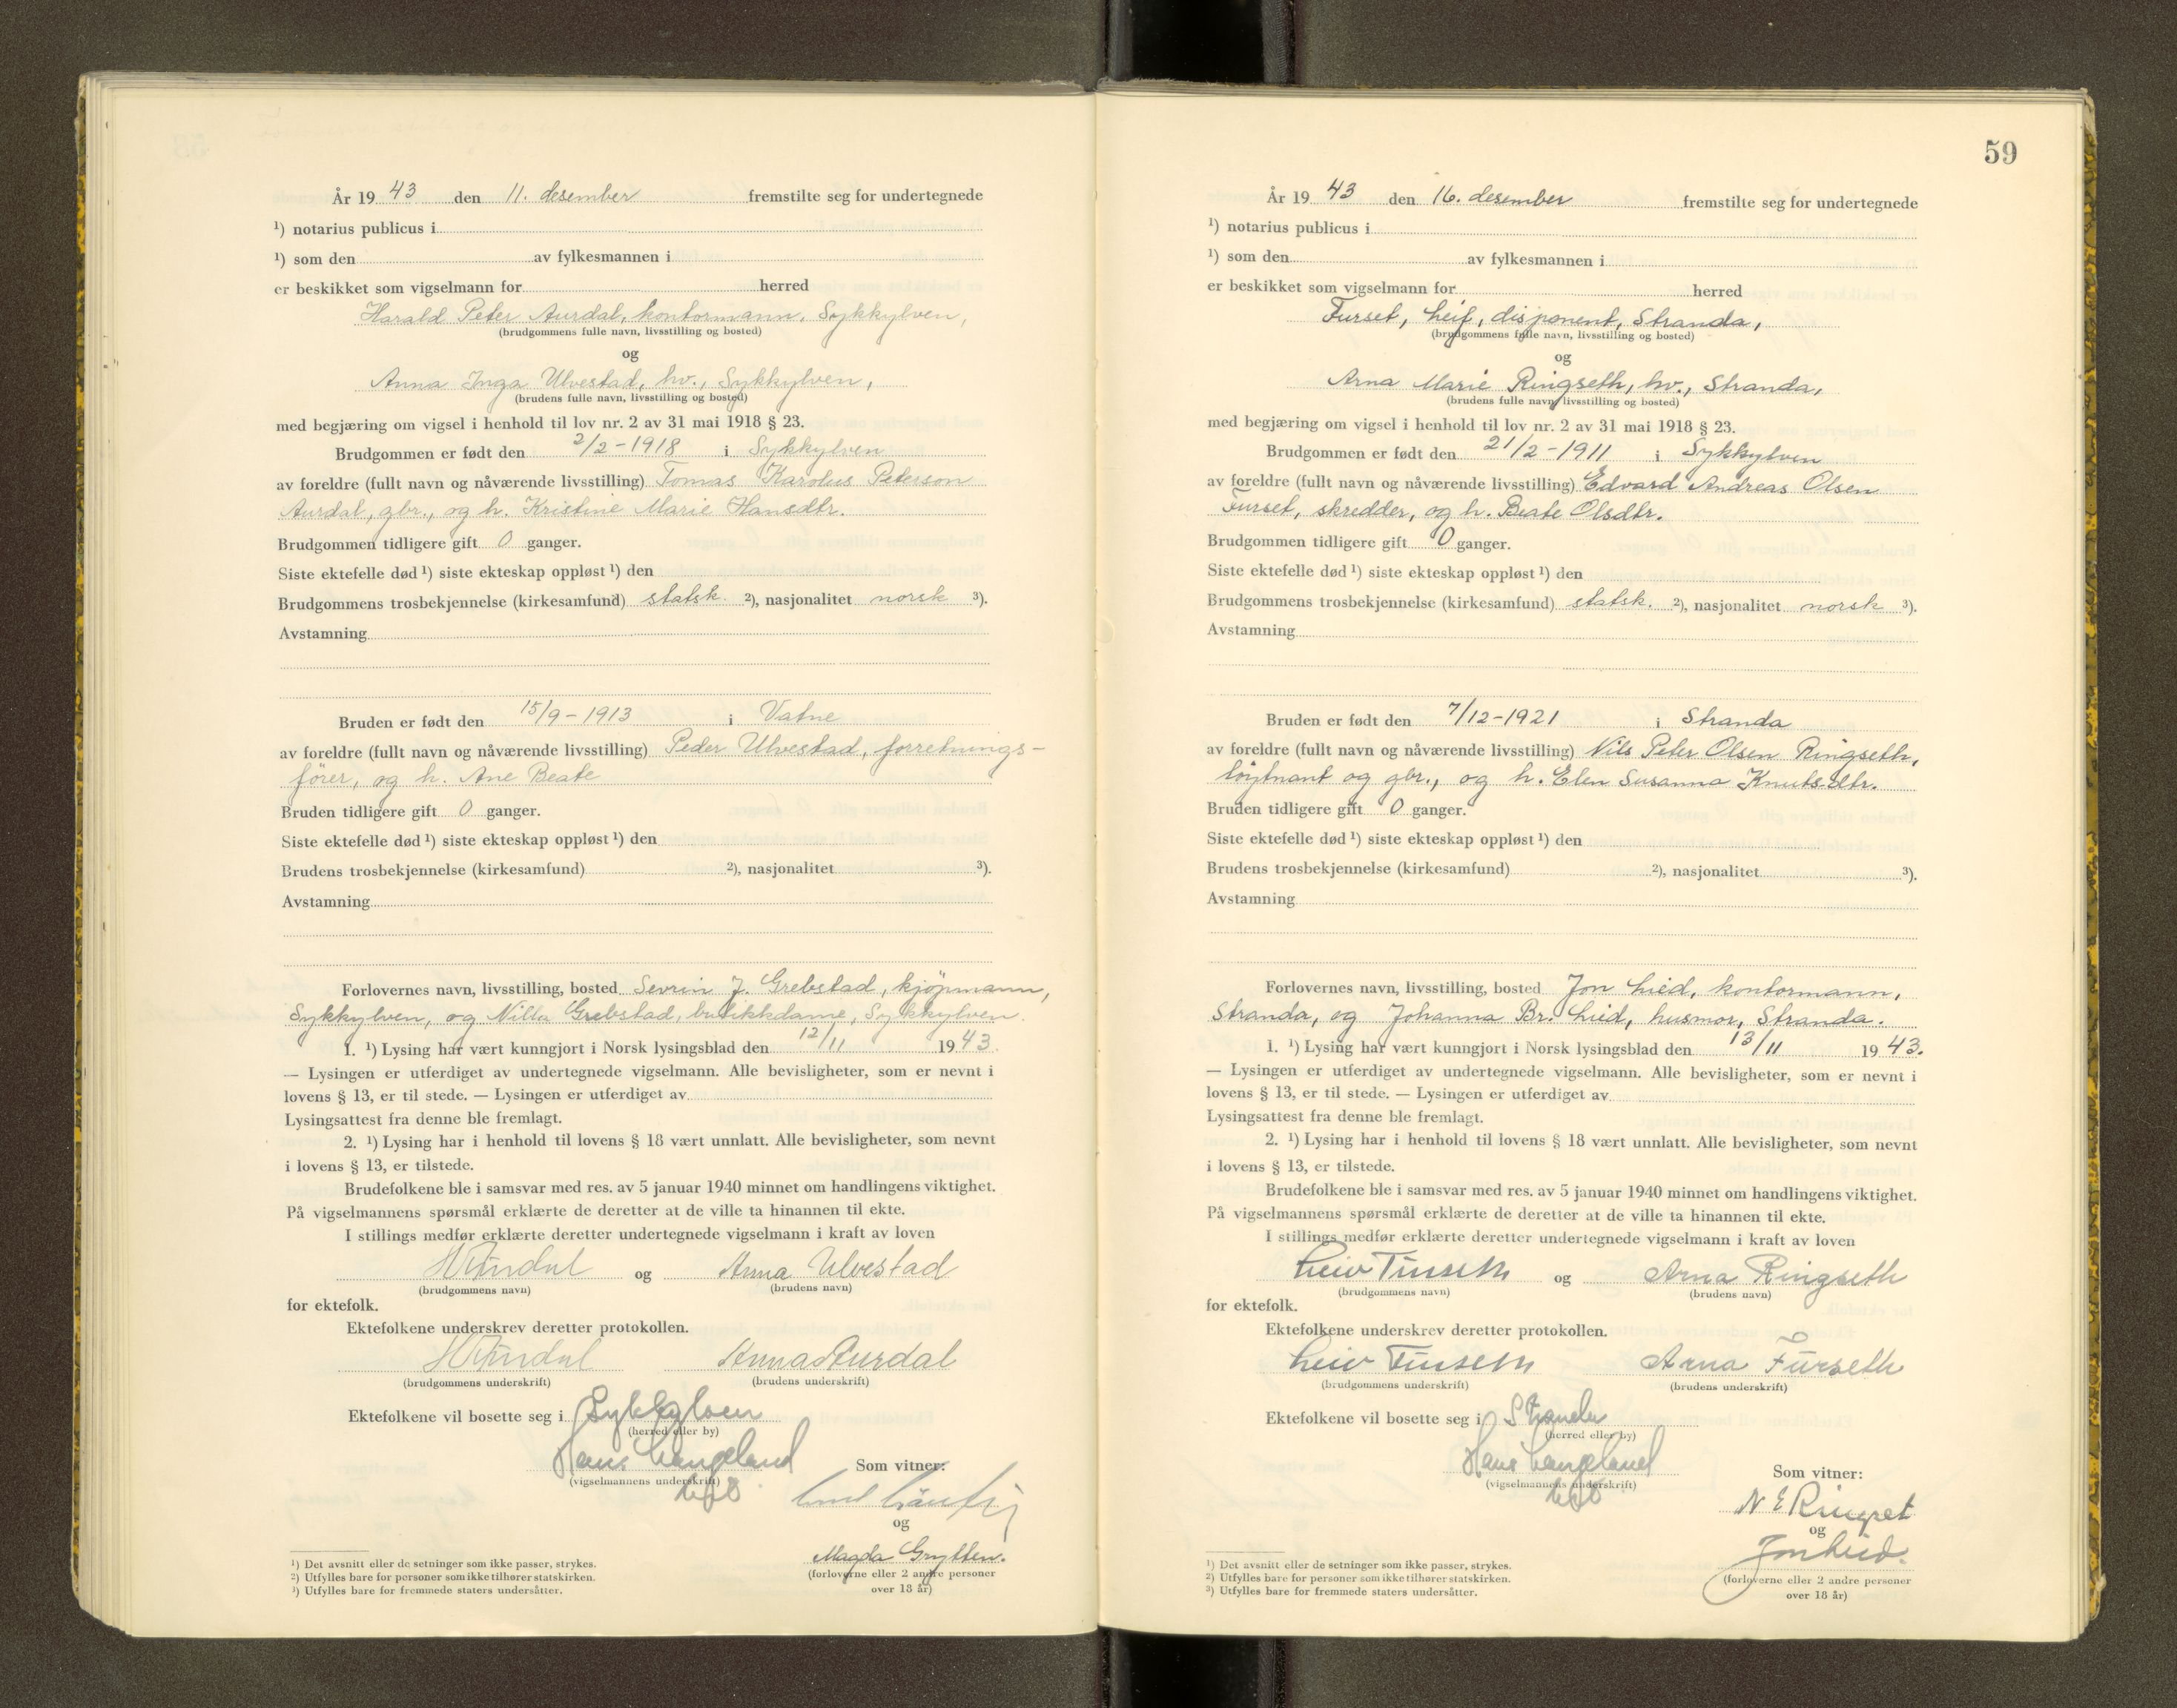 År 19 43 den 11. desember fremstilte seg for undertegnede
¹) notarius publicus i
¹) som den av fylkesmannen i
er beskikket som vigselmann for herred
Harald Peter Aurdal, kontormann, Sykkylven,
(brudgommens fulle navn, livsstilling og bosted)
og
Anna Inga Ulvestad, hv., Sykkylven,
(brudens fulle navn, livsstilling og bosted)
med begjæring om vigsel i henhold til lov nr. 2 av 31 mai 1918 § 23.
Brudgommen er født den 2/2-1918 i Sykkylven
av foreldre (fullt navn og nåværende livsstilling) Tomas Karolus Peterson
Aurdal, gbr., og h. Kristine Marie Hansdtr.
Brudgommen tidligere gift 0 ganger.
Siste ektefelle død ¹) siste ekteskap oppløst ¹) den
Brudgommens trosbekjennelse (kirkesamfund) statsk. ²), nasjonalitet norsk ³).
Avstamning
Bruden er født den 15/9-1913 i Vatne
av foreldre (fullt navn og nåværende livsstilling) Peder Ulvestad, forretnings-
förer, og h. Ane Beate
Bruden tidligere gift 0 ganger.
Siste ektefelle død ¹) siste ekteskap oppløst ¹) den
Brudens trosbekjennelse (kirkesamfund) ²), nasjonalitet ³).
Avstamning
Forlovernes navn, livsstilling, bosted Sevrin J. Grebstad, kjöpmann,
Sykkylven, og Nilla Grebstad, butikkdame, Sykkylven.
1. ¹) Lysing har vært kunngjort i Norsk lysingsblad den 12/11 19 43.
— Lysingen er utferdiget av undertegnede vigselmann. Alle bevisligheter, som er nevnt i
lovens § 13, er til stede. — Lysingen er utferdiget av
Lysingsattest fra denne ble fremlagt.
2. ¹) Lysing har i henhold til lovens § 18 vært unnlatt. Alle bevisligheter, som nevnt
i lovens § 13, er tilstede.
Brudefolkene ble i samsvar med res. av 5 januar 1940 minnet om handlingens viktighet.
På vigselmannens spørsmål erklærte de deretter at de ville ta hinannen til ekte.
I stillings medfør erklærte deretter undertegnede vigselmann i kraft av loven
H Aurdal og Anna Ulvestad
(brudgommens navn) (brudens navn)
for ektefolk.
Ektefolkene underskrev deretter protokollen.
H Aurdal Anna Aurdal
(brudgommens underskrift) (brudens underskrift)
Ektefolkene vil bosette seg i Sykkylven
(herred eller by)
Hans Langeland
(vigselmannens underskrift)
Som vitner:
og
Magda Grytten.
(forloverne eller 2 andre personer
over 18 år)
¹) Det avsnitt eller de setninger som ikke passer, strykes.
²) Utfylles bare for personer som ikke tilhører statskirken.
³) Utfylles bare for fremmede staters undersåtter.
59
År 19 43 den 16. desember fremstilte seg for undertegnede
¹) notarius publicus i
¹) som den av fylkesmannen i
er beskikket som vigselmann for herred
Furset, Leif, disponent, Stranda,
(brudgommens fulle navn, livsstilling og bosted)
og
Arna Marie Ringseth, hv., Stranda,
(brudens fulle navn, livsstilling og bosted)
med begjæring om vigsel i henhold til lov nr. 2 av 31 mai 1918 § 23.
Brudgommen er født den 21/2-1911 i Sykkylven
av foreldre (fullt navn og nåværende livsstilling) Edvard Andreas Olsen
Furset, skredder, og h. Beate Olsdtr.
Brudgommen tidligere gift 0 ganger.
Siste ektefelle død ¹) siste ekteskap oppløst ¹) den
Brudgommens trosbekjennelse (kirkesamfund) statsk. ²), nasjonalitet norsk ³).
Avstamning
Bruden er født den 7/12-1921 i Stranda
av foreldre (fullt navn og nåværende livsstilling) Nils Peter Olsen Ringseth,
löytnant og gbr., og h. Elen Susanna Knutsdtr.
Bruden tidligere gift 0 ganger.
Siste ektefelle død ¹) siste ekteskap oppløst ¹) den
Brudens trosbekjennelse (kirkesamfund) ²), nasjonalitet ³).
Avstamning
Forlovernes navn, livsstilling, bosted Jon Lied, kontormann,
Stranda, og Johanna Br. Lied, husmor, Stranda.
1. ¹) Lysing har vært kunngjort i Norsk lysingsblad den 13/11 19 43.
— Lysingen er utferdiget av undertegnede vigselmann. Alle bevisligheter, som er nevnt i
lovens § 13, er til stede. — Lysingen er utferdiget av
Lysingsattest fra denne ble fremlagt.
2. ¹) Lysing har i henhold til lovens § 18 vært unnlatt. Alle bevisligheter, som nevnt
i lovens § 13, er tilstede.
Brudefolkene ble i samsvar med res. av 5 januar 1940 minnet om handlingens viktighet.
På vigselmannens spørsmål erklærte de deretter at de ville ta hinannen til ekte.
I stillings medfør erklærte deretter undertegnede vigselmann i kraft av loven
Leiv Furseth og Arna Ringseth
(brudgommens navn) (brudens navn)
for ektefolk.
Ektefolkene underskrev deretter protokollen.
Leiv Furseth Arna Furseth
(brudgommens underskrift) (brudens underskrift)
Ektefolkene vil bosette seg i Stranda
(herred eller by)
Hans Langeland
(vigselmannens underskrift)
Som vitner:
N E Ringset
og
Jon Lied.
(forloverne eller 2 andre personer
over 18 år)
¹) Det avsnitt eller de setninger som ikke passer, strykes.
²) Utfylles bare for personer som ikke tilhører statskirken.
³) Utfylles bare for fremmede staters undersåtter.